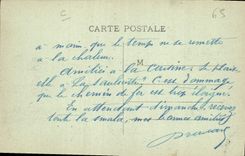 C
65
CARTE POSTALE
à moins que le temps ne se remette
à la chaleur.
Amélie a la cuisine. Se plaît
elle à la C'est dommage
que le chemin de fer est trop éloigné.
En attendant dimanche, recevez
toute la smala, mes bonnes amitiés